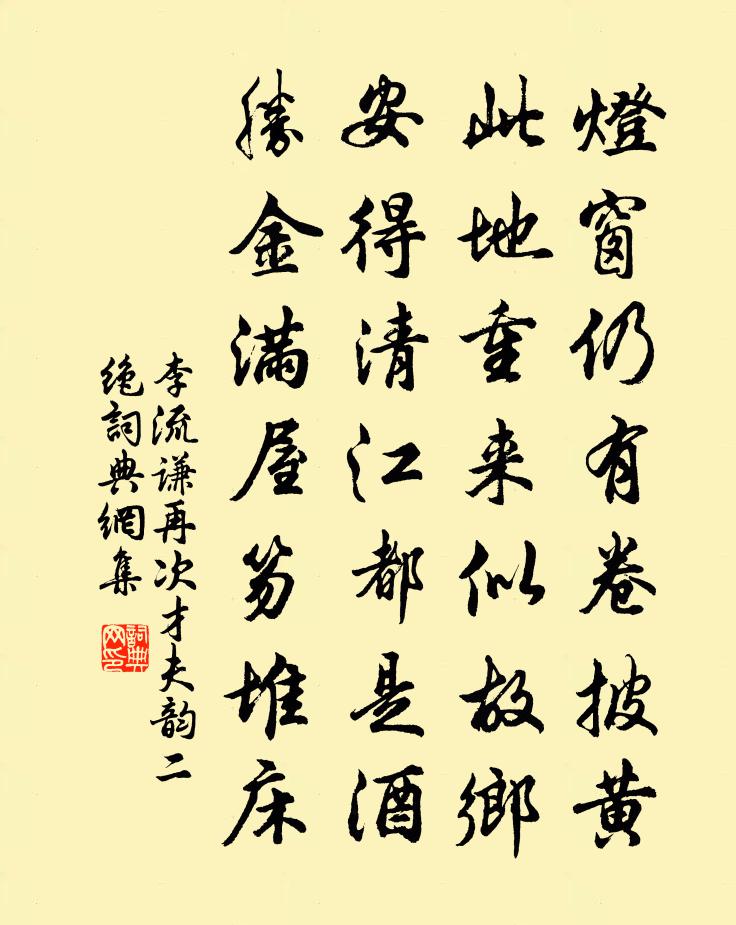 燈窗仍有卷披黄
此地重来似故鄉
安得清江都是酒
勝金滿屋笏堆床
李流谦再次才夫韵二
绝詞典網集
詞典
网印